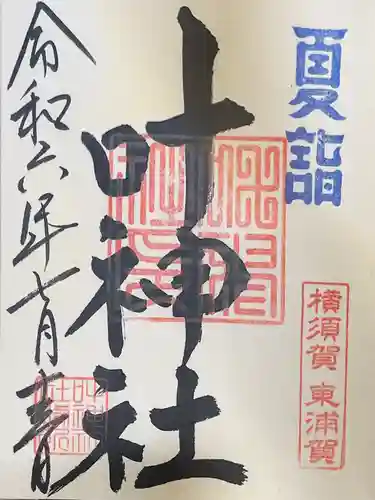 夏詣
横須賀 東浦賀
叶神社
令和六年七月